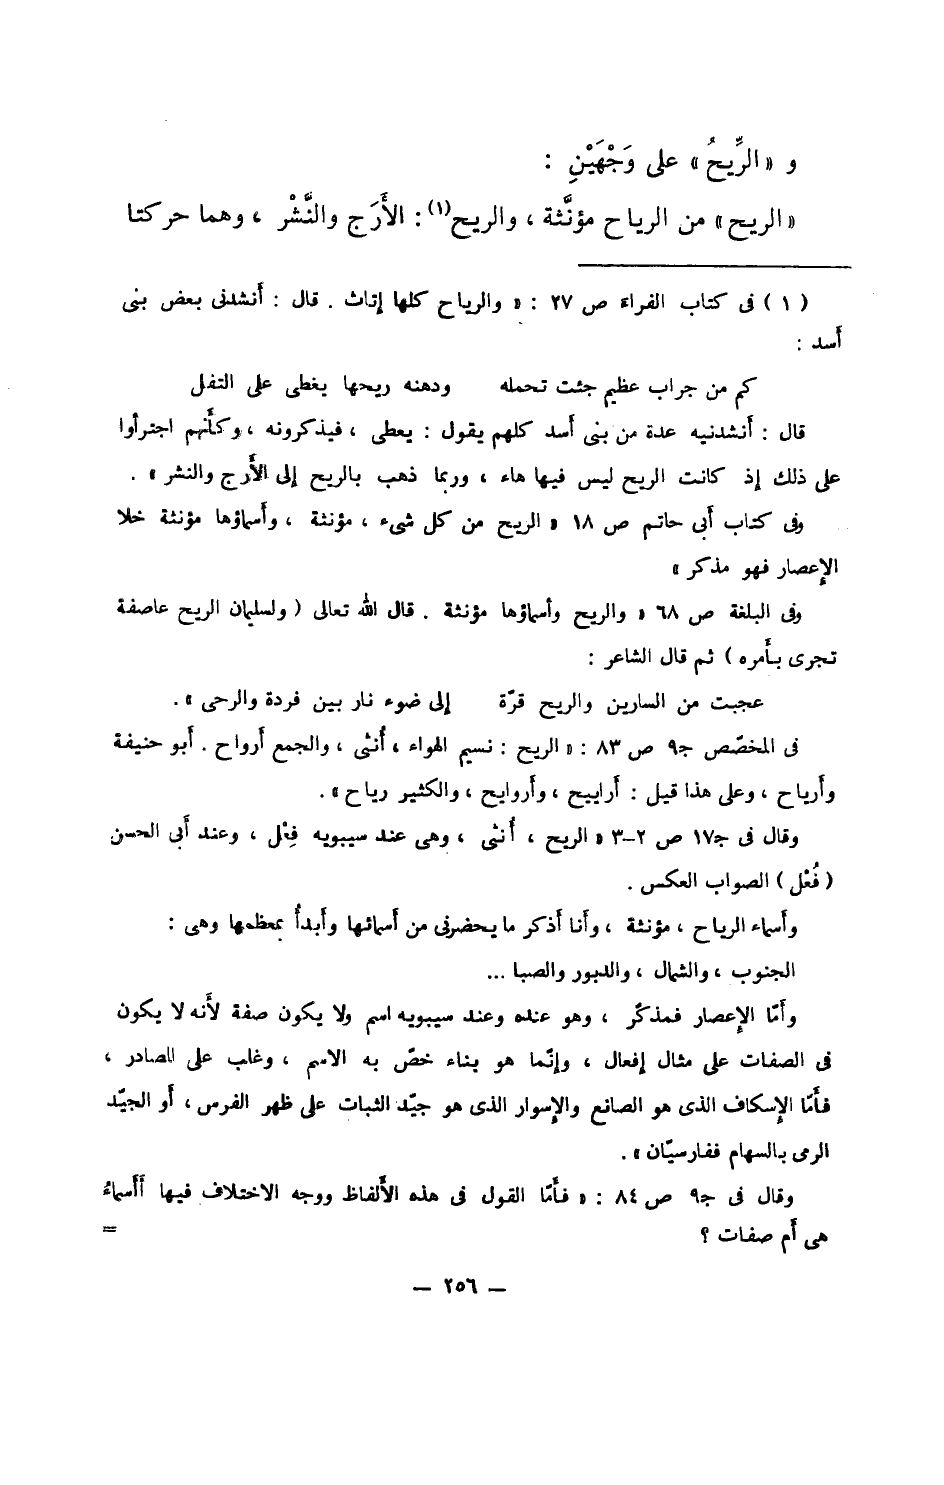 و «الرِّيحُ» على وَجْهَيْنِ :
«الريح» من الرياح مؤنَّثة ، والريح(١) : الأَرَج والنَّشْر ، وهما حركتا
( ١ ) فى كتاب الفراء ص ٢٧ : « والرياح كلها إناث . قال : أنشدنى بعض بنى
أسد :
كم من جراب عظيم جئت تحمله ودهنه ريحها يغطى على التفل
قال : أنشدنيه عدة من بنى أسد كلهم يقول : يعطى ، فيذكرونه ، وكأنهم اجترأوا
على ذلك إذ كانت الريح ليس فيها هاء ، وربما ذهب بالريح إلى الأرج والنشر » .
وفى كتاب أبى حاتم ص ١٨ « الريح من كل شىء ، مؤنثة ، وأسماؤها مؤنثة خلا
الإعصار فهو مذكر »
وفى البلغة ص ٦٨ « والريح وأسماؤها مؤنثة . قال الله تعالى ( ولسليمان الريح عاصفة
تجرى بأمره ) ثم قال الشاعر :
عجبت من السارين والريح قرّة إلى ضوء نار بين فردة والرحى » .
فى المخصّص ج٩ ص ٨٣ : « الريح : نسيم الهواء ، أُنثى ، والجمع أرواح . أبو حنيفة
وأرياح ، وعلى هذا قيل : أراييح ، وأروايح ، والكثير رياح » .
وقال فى ج١٧ ص ٢-٣ « الريح ، أُنثى ، وهى عند سيبويه فِعْل ، وعند أبى الحسن
( فُعْل ) الصواب العكس .
وأسماء الرياح ، مؤنثة ، وأنا أذكر ما يحضرنى من أسمائها وأبدأُ بمعظمها وهى :
الجنوب ، والشمال ، والدبور والصبا ...
وأمّا الإعصار فمذكّر ، وهو عنده وعند سيبويه اسم ولا يكون صفة لأنه لا يكون
فى الصفات على مثال إفعال ، وإنّما هو بناء خصّ به الاسم ، وغلب على المصادر ،
فأمّا الإسكاف الذى هو الصانع والإسوار الذى هو جيّد الثبات على ظهر الفرس ، أو الجيّد
الرمى بالسهام ففارسيّان » .
وقال فى ج٩ ص ٨٤ : « فأمّا القول فى هذه الألفاظ ووجه الاختلاف فيها أأسماءُ
هى أم صفات ؟ =
— ٢٥٦ —